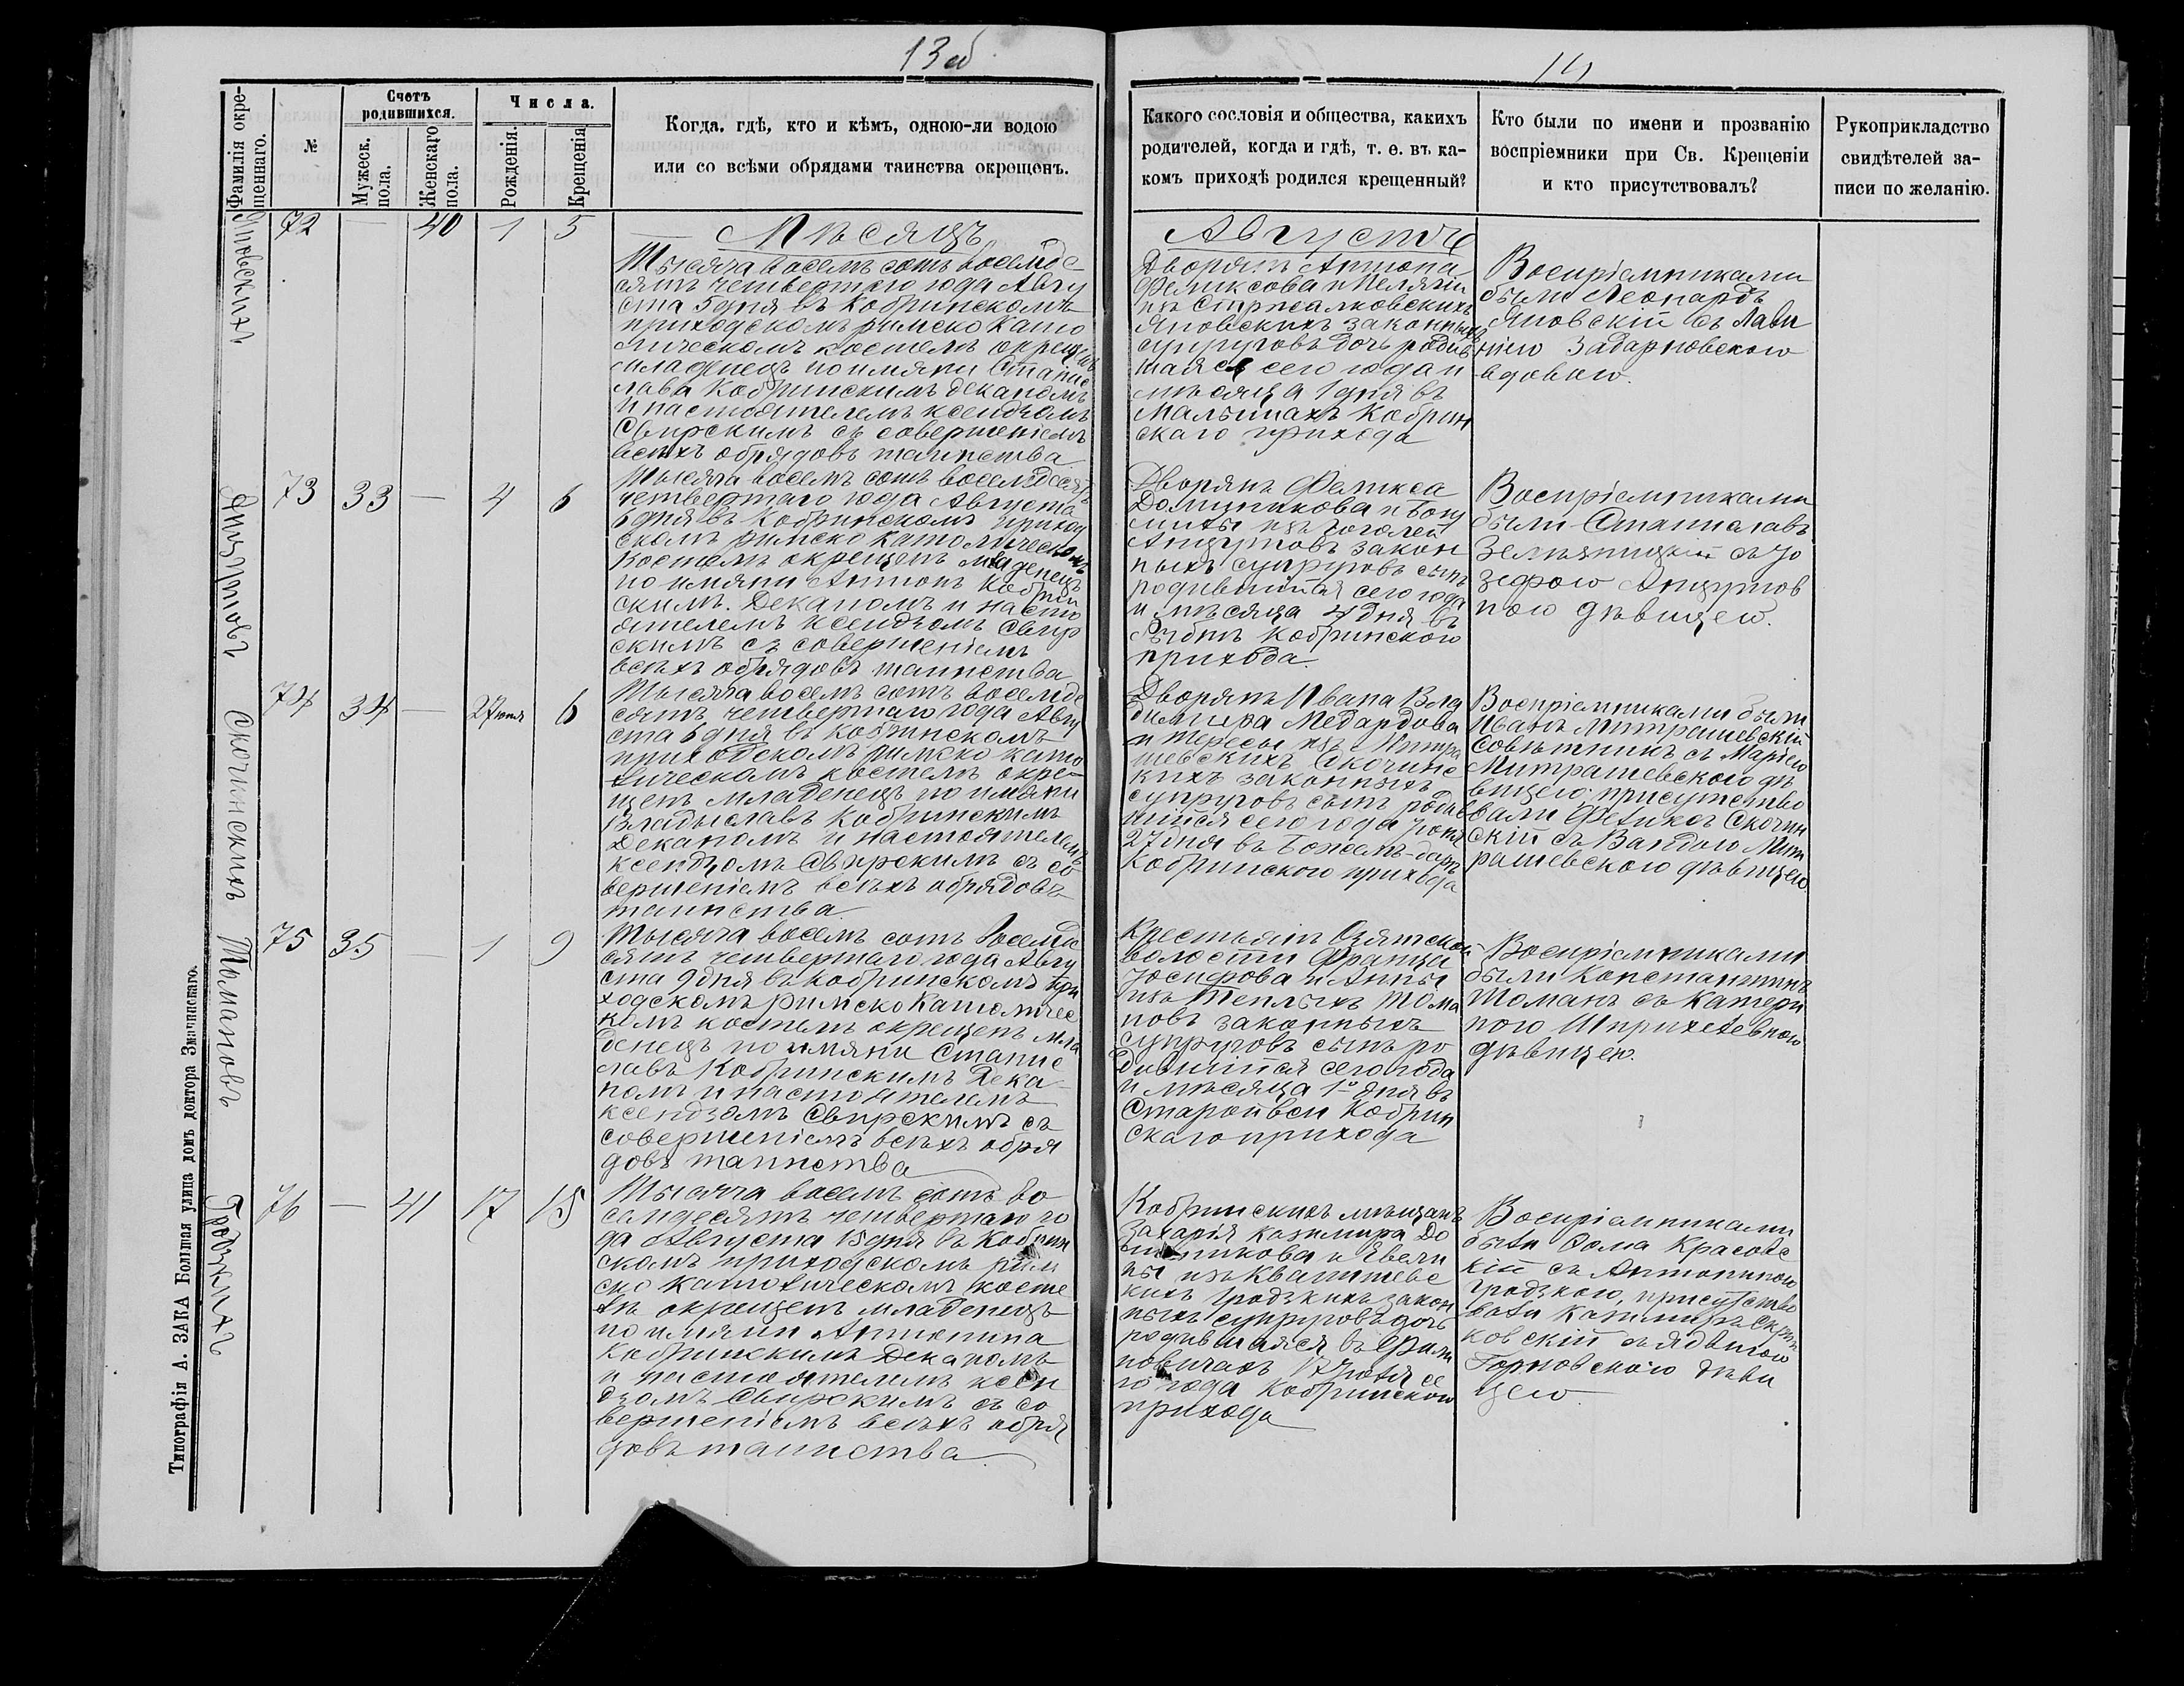 13об
14
Фамилія окре-
щеннаго.
№
Счетъ
родившихся.
Мужеск.
пола.
Женскаго
пола.
Числа.
Рожденія.
Крещенія
Когда, гдѣ, кто и кѣмъ, одною-ли водою
или со всѣми обрядами таинства окрещенъ.
Какого сословія и общества, какихъ
родителей, когда и гдѣ, т. е. въ ка-
комъ приходѣ родился крещенный?
Кто были по имени и прозванію
воспріемники при Св. Крещеніи
и кто присутствовалъ?
Рукоприкладство
свидѣтелей за-
писи по желанію.
Яновскихъ
72 — 40 1 5
Мѣсяцъ
Тысяча восемъ сотъ восемде
сятъ четвертого года Авгу
ста 5 дня въ Кобринскомъ
приходскомъ римско Като
лическомъ костелѣ окрещенъ
младенецъ по имяни Станис
лава Кобринскимъ деканомъ
и настоятелемъ ксендзомъ
Свирскимъ съ совершеніемъ
всѣхъ обрядовъ таинства
Августъ
Дворянъ Антона
Феликсова и Пелягіи
изъ Стржалковскихъ
Яновскихъ законныхъ
супруговъ дочь родив
шаяся сего года и
мѣсяца 1 дня въ
Кобрин
скаго прихода
Воспріемниками
были Леонардъ
Яновскій съ
Задарновскою
вдовою.
Анцутовъ
73 33 — 4 6
Тысяча восемъ сотъ восемдесятъ
четвертаго года Августа
6 дня въ Кобринскомъ приход
скомъ римско католическомъ
костелѣ окрещенъ младенецъ
по имяни Антонъ Кобрин
скимъ Деканомъ и насто
ятелемъ ксендзомъ Свир
скимъ съ совершеніемъ
всѣхъ обрядовъ таинства
Дворянъ Феликса
Доминикова и
изъ Гоголей
Анцутовъ закон
ныхъ супруговъ сынъ
родившійся сего года
и мѣсяца 4 дня въ
Кобринского
прихода.
Воспріемниками
были Станиславъ
съ Іо
зефою Анцутов
ною дѣвицею.
Скочинскихъ
74 34 — 27 юня 6
Тысяча восемъ сотъ восемде
сятъ четвертаго года Авгу
ста 6 дня въ Кобринскомъ
приходскомъ римско като
лическомъ костелѣ окре-
щенъ младенецъ по имяни
Владыславъ Кобринскимъ
Деканомъ и настоятелемъ
ксендзомъ Свирскимъ съ со
вершеніемъ всѣхъ обрядовъ
таинства
Дворянъ Ивана Вла
димира Медардова
и Тересы изъ Митра
шевскихъ Скочинс
кихъ законныхъ
супруговъ сынъ родив
шійся сего года Іюня
27 дня въ Божемъ-дарѣ
Кобринского прихода
Воспріемниками были
Иванъ Митрашевскій
Совѣтникъ съ Маріею
Митрашевскою дѣ
вицею; присутство
вали Феликсъ Скочин
скій съ Вандою Мит
рашевскою дѣвицею.
Томановъ
75 35 — 1 9
Тысяча восемъ сотъ восемде
сятъ четвертаго года Авгу
ста 9 дня въ Кобринскомъ при
ходскомъ римско Католичес
комъ костелѣ окрещенъ мла
денецъ по имяни Станис
лавъ Кобринскимъ Дека
номъ и настоятелемъ
ксендзомъ Свирскимъ съ
совершеніемъ всѣхъ обря
довъ таинства
Крестьянъ Озятской
волости Франца
Іосифова и Анны
изъ Теплыхъ Тома
новъ законныхъ
супруговъ сынъ ро
дившійся сего года
и мѣсяца 1го дня въ
Старой вси Кобрин
скаго прихода
Воспріемниками
были Константинъ
Томанъ съ Катери
ною
дѣвицею.
Гродзкихъ
76 — 41 17 15
Тысяча восемъ сотъ во
семдесятъ четвертаго го
да Августа 15 дня въ Кобрин
скомъ приходскомъ рим
ско католическомъ косте
лѣ окрещенъ младенецъ
по имяни Антонина
Кобринскимъ Деканомъ
и настоятелемъ ксен
дзомъ Свирскимъ съ со
вершеніемъ всѣхъ обря
довъ таинства
Кобринскихъ мѣщанъ
Захарія Казимира До
миникова и Евели
ны изъ Квапишевс
кихъ Гродзкихъ закон
ныхъ супруговъ дочь
родившаяся въ
17 Іюля се
го года Кобринского
прихода
Воспріемниками
были Ѳома Красовс
кій съ Антониною
Гродзкою, присутство
вали Казимиръ
ковскій съ Ядвигою
Горновскою дѣви
цею.
Типографія А. ЗАКА Болшая улица домъ доктора Змачинскаго.